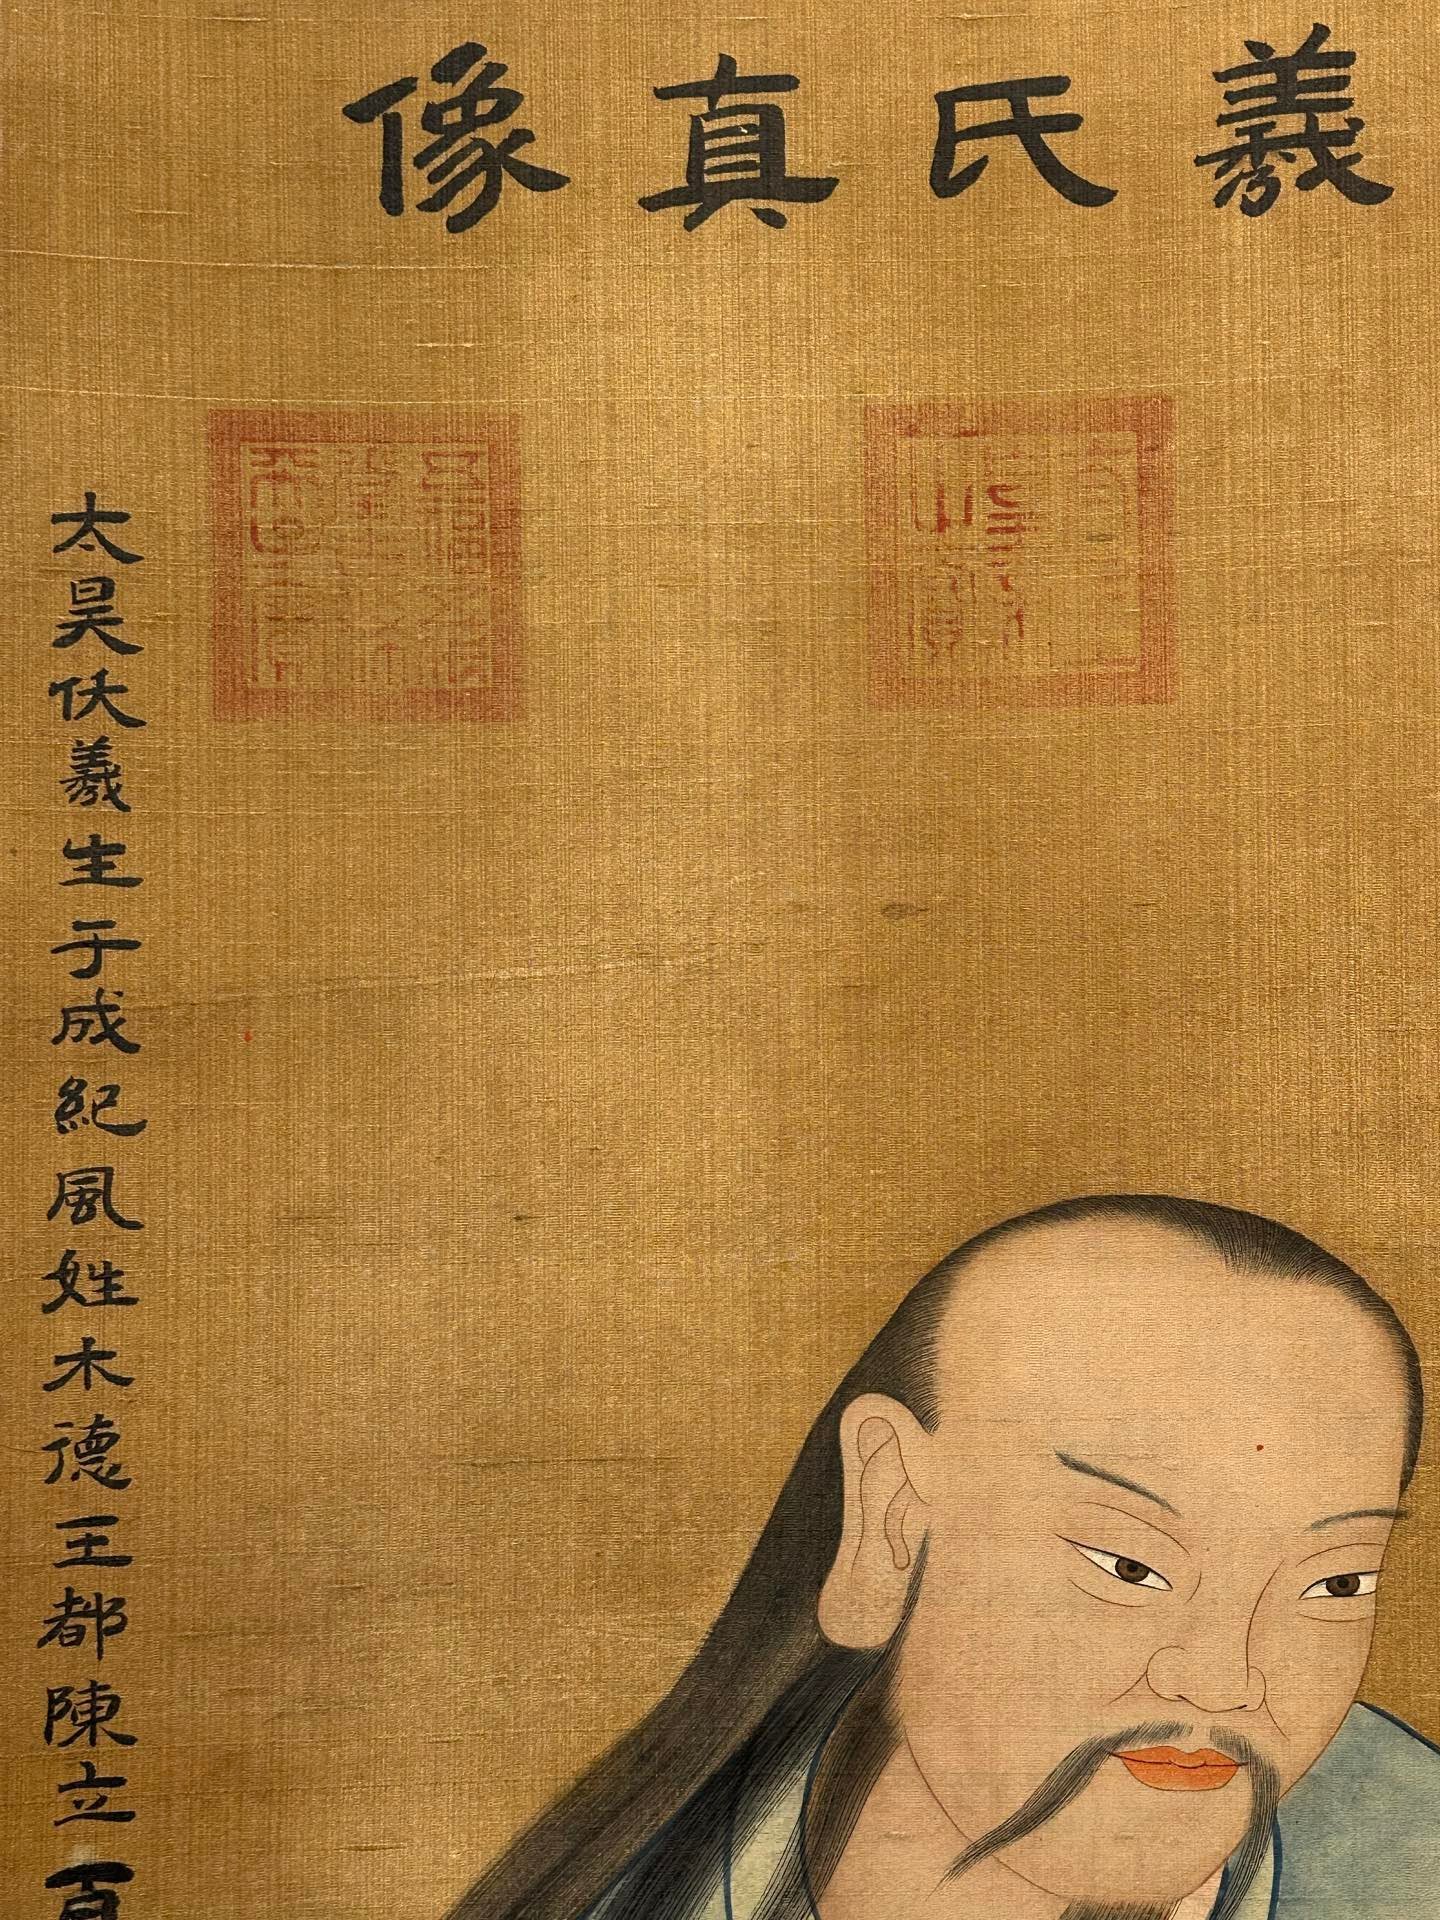 羲氏真像
太昊伏羲生于成紀風姓木德王都陳立百